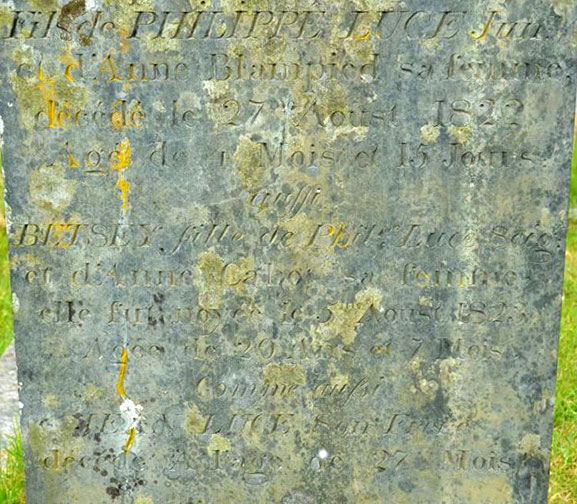 Fils de PHILIPPE LUCE Junr
et d'Anne Blampied sa femme,
décédé le 27me Aoust 1822
Agé de Mois et 15 Jours.
aussi
BETSEY, fille de Phil: Luce Seigr
et d'Anne Cabot sa femme
elle fut noyée le 5me Aoust 1823
Agée de 20 Ans et 7 Mois
Comme aussi
LUCE Son Frere
décédé a l'age de 27 Mois